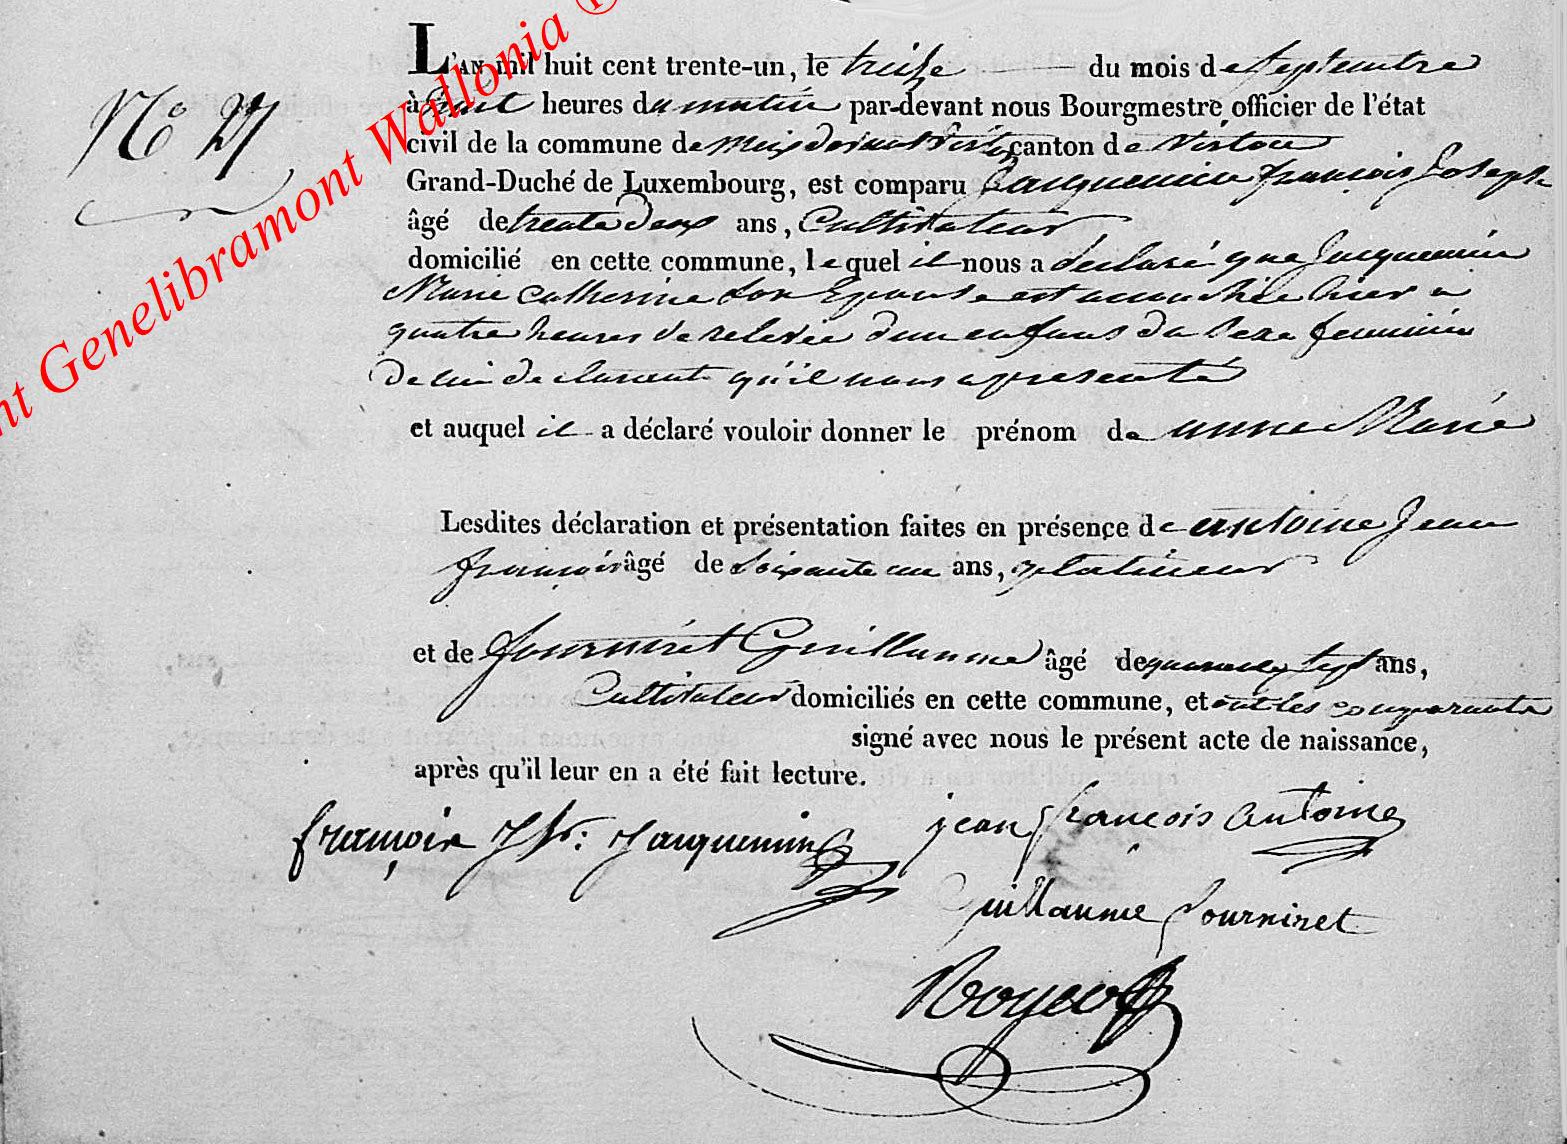 nt Genelibramont Wallonia ©
N° 27
L'AN mil huit cent trente-un, le treize du mois de septembre
à huit heures du matin par-devant nous Bourgmestre officier de l'état
civil de la commune de meix devant Virton canton de Virton
Grand-Duché de Luxembourg, est comparu Jacquemin françois Joseph
âgé de trente deux ans, Cultivateur
domicilié en cette commune, lequel il nous a déclaré que Jacquemin
Marie Catherine son Epouse est accouchée hier a
quatre heures de relevée d'un enfans du sexe feminin
de lui declarant qu'il nous a presenté
et auquel il a déclaré vouloir donner le prénom de anne Marie
Lesdites déclaration et présentation faites en présence de antoine Jean
françois âgé de soixante un ans, platineur
et de fourniret Guillaume âgé de quarante sept ans,
Cultivateur domiciliés en cette commune, et ont les comparants
signé avec nous le présent acte de naissance,
après qu'il leur en a été fait lecture.
françois Jph: Jacquemin jean françois antoine
Guillaume fourniret